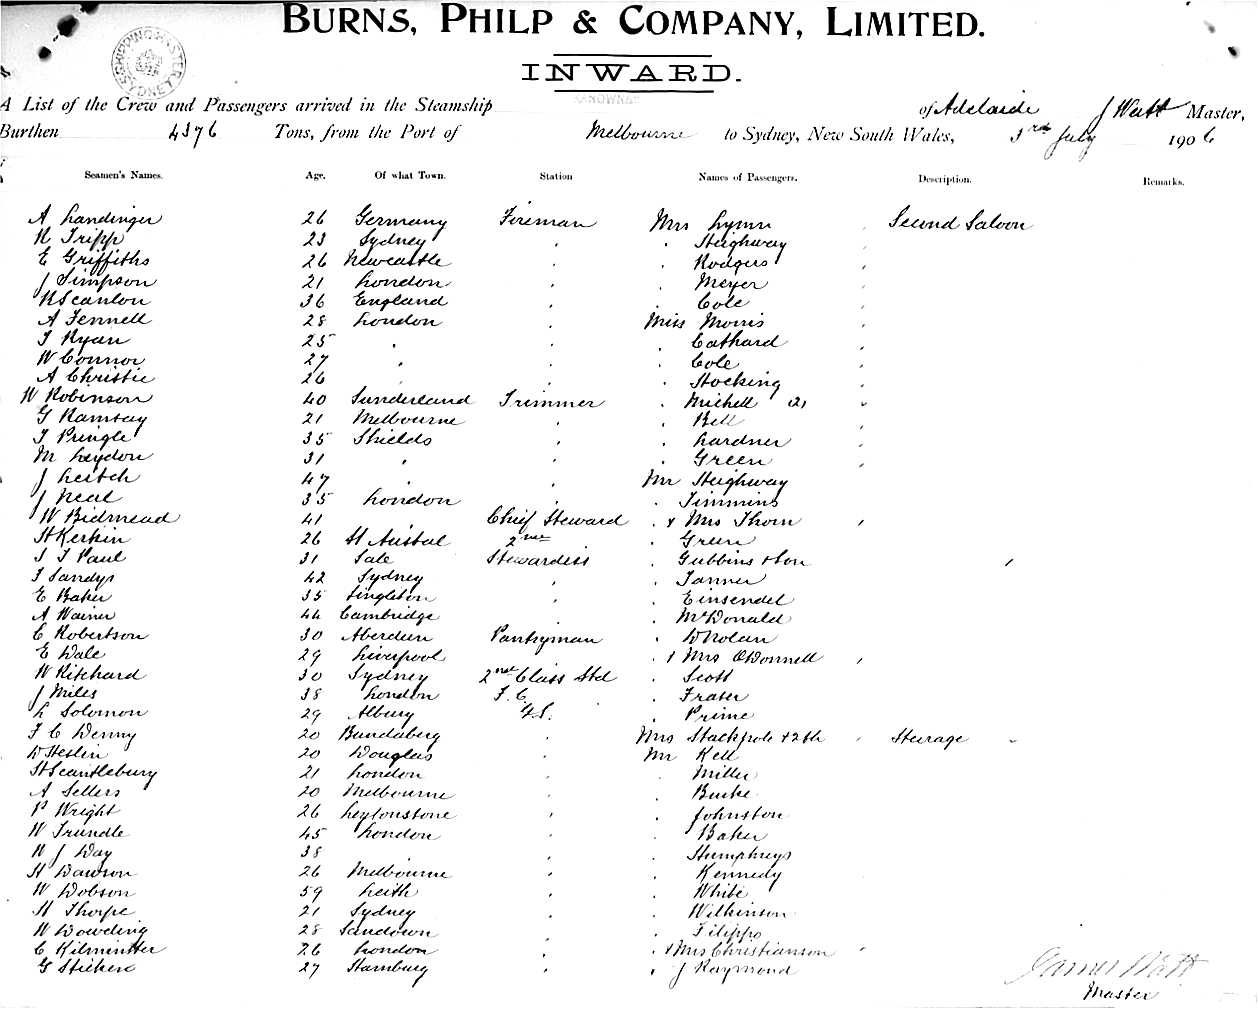 BURNS, PHILP & COMPANY, LIMITED.
INWARD.
A List of the Crew and Passengers arrived in the Steamship KANOWNA of Adelaide J Watt Master,
Burthen 4376 Tons, from the Port of Melbourne to Sydney, New South Wales, 3rd July 1906
Seamen's Names. Age. Of what Town. Station Names of Passengers. Description. Remarks.
A Landinger 26 Germany Fireman Mrs Lynn Second Saloon
N Tripp 23 Sydney " " Steighway "
E Griffiths 26 Newcastle " " Rodgers "
J Simpson 21 London " " Meyer "
R Scanlon 36 England " " Cole "
A Fennell 28 London " Miss Morris "
T Ryan 25 " " " Cathard "
W Connor 27 " " " Cole "
A Christie 26 " " " Stocking "
W Robinson 40 Sunderland Trimmer " Michell (2) "
G Ramsay 21 Melbourne " " Bell "
T Pringle 35 Shields " " Lardner "
M Leydon 31 " " " Green "
J Leitch 47 " " Mr Steighway
J Neal 35 London " " Timmins
W Bidmead 41 Chief Steward " & Mrs Thorn "
H Kerkin 26 St Austal 2nd " Green
S J Paul 31 Sale Stewardess " Gubbins & Son "
F Sandys 42 Sydney " " Tanner
E Baker 35 Singleton " " Einsendel
A Warner 44 Cambridge " " McDonald
C Robertson 30 Aberdeen Pantryman " D Nolan
E Dale 29 Liverpool " & Mrs O'Donnell "
W Kitchard 30 Sydney 2nd Class Std " Scott
J Miles 38 London F. C. " Fraser
L Solomon 29 Albury G.S. " Prime
F C Denny 20 Bundaberg " Mrs Stackpole & 2 Ch " Steerage "
D Heslin 20 Douglas " Mr Kell
H Scantlebury 21 London " " Miller
A Sellers 20 Melbourne " " Burke
P Wright 26 Leytonstone " " Johnston
W Trundle 45 London " " Baker
W J Day 38 " " " Humphreys
H Dawson 26 Melbourne " " Kennedy
W Dobson 59 Leith " " White
H Thorpe 21 Sydney " " Wilkinson
W Dowding 28 Sandown " " Filippo
C Kilminster 26 London " " & Mrs Christianson "
G Stichens 27 Hamburg " " J Raymond
James Watt
Master